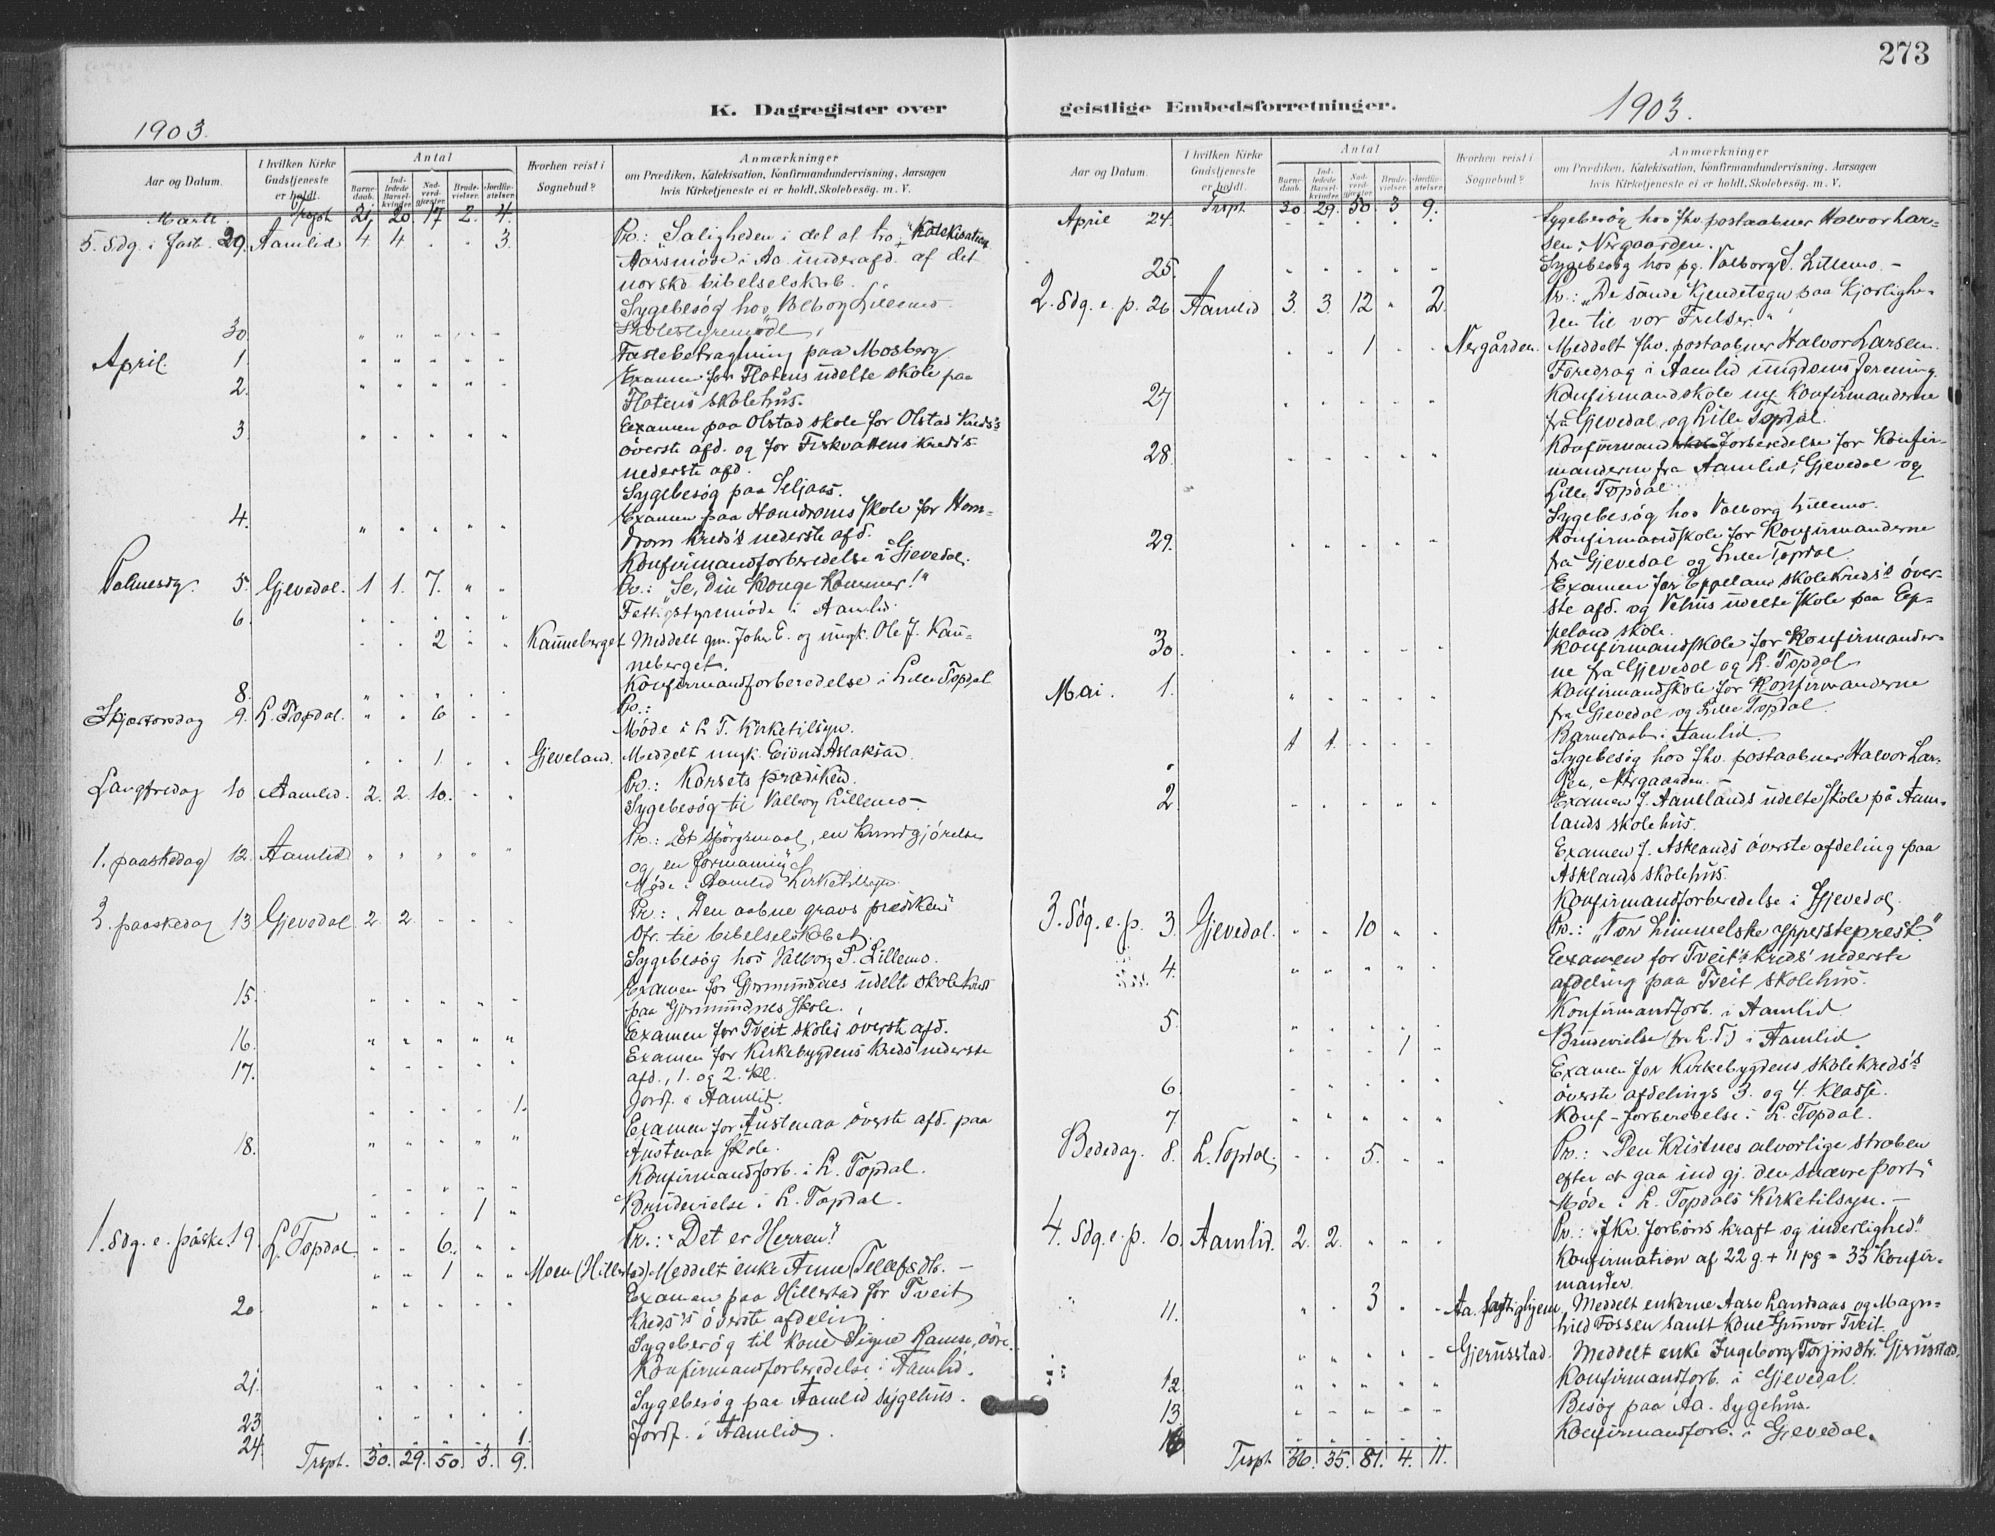 1903.
K. Dagregister over
Aar og Datum.
I hvilken Kirke Gudstjeneste er holdt.
Antal
Barnedaab.
Indledede Barselkvinder.
Nadverdgjester.
Brudevielser.
Jordfæstelser.
Hvorhen reist i Sognebud?
Anmærkninger
om Prædiken, Katekisation, Konfirmandundervisning, Aarsagen
hvis Kirketjeneste ei er holdt, Skolebesøg. m. V.
Marts. Trspt. 20. 17. 2. 4.
5. Sdg. i fast. 29. Aamlid 4 4 " " 3. Pr.: Saligheden i det at tro. Katekisation
Aarsmøde i Aa. underafd. af det
norske bibelselskab.
Sygebesøg hos Valborg Lillemo.
30. " " " " " Skolestyremøde.
April. 1. " " " " " Fastebetragtning paa Mosberg.
2. " " " " " Examen for Flatens udelte skole paa
Flatens skolehus.
3 " " " " " Examen paa Olstad skole for Olstad Kreds's
överste afd. og for Fiskvattens Kreds's
nederste afd.
Sygebesøg paa Seljaas.
4. " " " " " Examen paa Hamdroms skole for Ham-
drom Kreds's nederste afd.
Konfirmandforberedelse i Gjevedal.
Palmesdg. 5. Gjevedal. 1 1. 7. " " Pr.: "Se, Din Konge Kommer!"
6. " " " " " Fattigstyremøde i Aamlid.
" " 2 " " Kauneberget Meddelt gm. John E. og ungk. Ole J. Kau-
neberget.
8. " " " " " Konfirmandforberedelse i Lille Topdal
Skjærtorsdag 9. L. Topdal. " " 6 " " Pr.:
Møde i L. T. Kirketilsyn.
" " 1 " " Gjeveland. Meddelt ungk. Eivind Aslaksen
Langfredag 10 Aamlid. 2. 2. 10. " " Pr.: Korsets prædiken.
Sygebesøg til Valborg Lillemo.-
1. paaskedag 12. Aamlid " " " " " Pr.: Et spørgsmaal, en kundgjörelse
og en formaning
Møde i Aamlid Kirketilsyn.
2. paaskedag 13 Gjevedal 2. 2. " " " Pr.: "Den aabne gravs prædiken"
Ofr. til bibelselskabet.
Sygebesøg hos Valborg S. Lillemo.
15. " " " " " Examen for Gjermundnes udelte skolekreds
paa Gjermundnes Skole.
16. " " " " " Examen for Tveit skoles överste afd.
17. " " " " " Examen for Kirkebygdens Kreds' nederste
afd., 1. og 2. Kl.
" " " " 1. Jordf. i Aamlid.
18. " " " " " Examen for Austenaa överste afd. paa
Austenaa Skole.
" " " " " Konfirmandforb. i L. Topdal.
" " " 1 " Brudevielse i L. Topdal.
1. Sdg. e. påske 19. L. Topdal. " " 6. " " Pr.: "Det er Herren!"
" " 1 " " Moen (Hillestad). Meddelt enke Anne Tellefsdtr. -
20. " " " " " Examen paa Hillestad for Tveit
Kreds's överste afdeling.
Sygebesög til kone Signe Ramse, övre.
21. " " " " " Konfirmandforberedelse i Aamlid.
23. " " " " " Sygebesög paa Aamlid sygehus.
24. " " " " 1. Jordf. i Aamlid.
Trspt. 30. 29. 50 3. 9.
273
geistlige Embedsforretninger.
1903.
Aar og Datum.
I hvilken Kirke Gudstjeneste er holdt.
Antal
Barnedaab.
Indledede Barselkvinder.
Nadverdgjester.
Brudevielser.
Jordfæstelser.
Hvorhen reist i Sognebud?
Anmærkninger
om Prædiken, Katekisation, Konfirmandundervisning, Aarsagen
hvis Kirketjeneste ei er holdt, Skolebesøg. m. V.
Trspt. 30. 29. 50 3 9.
April 24. " " " " " Sygebesøg hos fhv. postaabner Halvor Lar-
sen, Nergaarden.
25. " " " " " Sygebesøg hos pg. Valborg S. Lillemo. -
2. Sdg. e. p. 26 Aamlid 3. 3. 12 " 2. Pr.: "De sande kjendetegn paa kjærlighe-
den til vor Frelser."
" " 1 " " Nergården. Meddelt fhv. postaabner Halvor Larsen.
Foredrag i Aamlid ungdomsforening.
27 " " " " " Konfirmandskole m. Konfirmanderne
fra Gjevedal og Lille Topdal.
28. " " " " " Konfirmandforberedelse for Konfir-
manderne fra Aamlid, Gjevedal og
Lille Topdal.
Sygebesøg hos Valborg Lillemo.
29. " " " " " Konfirmandskole for Konfirmanderne
fra Gjevedal og Lille Topdal.
Examen for Eppeland skolekreds's över-
ste afd. og Vehus udelte skole paa Ep-
peland skole.
30. " " " " " Konfirmandskole for Konfirmander-
ne fra Gjevedal og L. Topdal.
Mai. 1. " " " " " Konfirmandskole for Konfirmanderne
fra Gjevedal og Lille Topdal.
1 1. " " " Barnedaab i Aamlid.
Sygebesøg hos fhv. postaabner Halvor Lar-
sen, Nergaarden. -
2. " " " " " Examen f. Aamlands udelte skole på Aam-
lands skolehus.
Examen f. Asklands överste afdeling paa
Asklands skolehus.
Konfirmandforberedelse i Gjevedal.
3. Sdg. e. p. 3. Gjevedal. " " 10 " " Pr.: "Vor himmelske ypperstepræst."
4. " " " " " Examen for Tveit's kreds' nederste
afdeling paa Tveit skolehus.
Konfirmandforb. i Aamlid.
5. " " " " "
" " " 1 " Brudevielse (fr. L. T.) i Aamlid.
6. " " " " " Examen for Kirkebygdens skolekreds's
överste afdelings 3. og 4. klasse.
7 " " " " " Konf-forberedelse i L. Topdal.
Bededag. 8. L. Topdal. " " 5. " " Pr.: "Den Kristnes alvorlige stræben
efter at gaa ind gj. den snævre port"
Møde i L. Topdals Kirketilsyn. -
4. Sdg. e. p. 10. Aamlid. 2. 2. " " " Pr.: "Jkr. forböns kraft og inderlighed."
Konfirmation af 22 g. + 11 pg = 33 Konfir-
mander.
11. " " 3 " " Aa. fattighjem, Meddelt enkerne Aase Landaas og Magn-
hild Fossen samt kone Gunvor Tveit.
" " " " " Gjerusstad. Meddelt enke Ingeborg Torjusdtr. Gjerusstad.
12 " " " " " Konfirmandforb. i Gjevedal.
13. " " " " " Besøg paa Aa. Sygehus.
" " " " " Konfirmandforb. i Gjevedal.
Trspt 36. 35. 81. 4. 11.